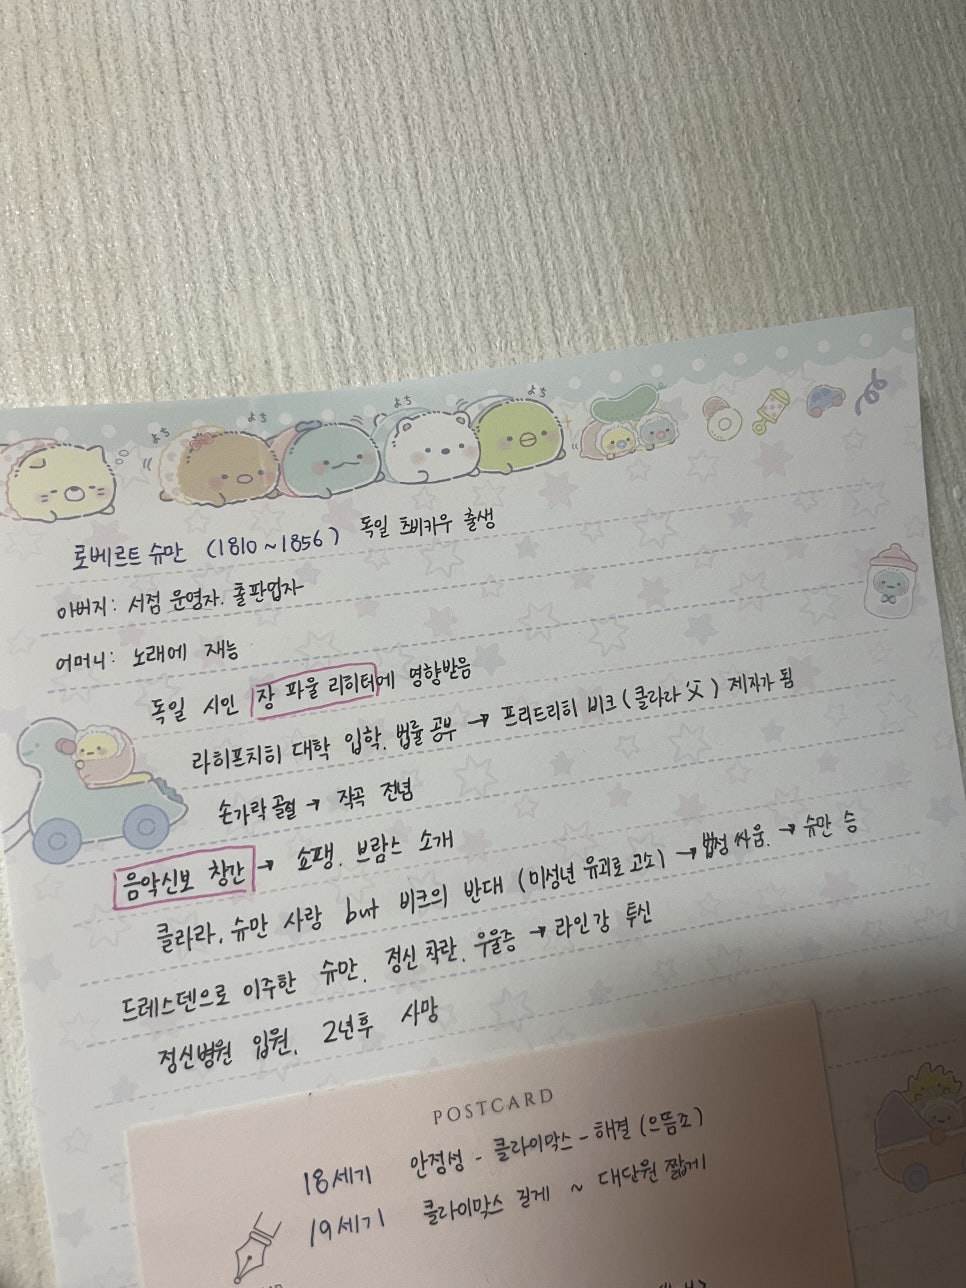 よち よち よち
로베르트 슈만 (1810~1856) 독일 츠비카우 출생
아버지: 서점 운영자. 출판업자
어머니: 노래에 재능
독일 시인 장 파울 리히터에 영향받음
라히프치히 대학 입학. 법률 공부 → 프리드리히 비크 (클라라 父) 제자가 됨
손가락 골절 → 작곡 전념
음악신보 창간 → 쇼팽. 브람스 소개
클라라, 슈만 사랑 but 비크의 반대 (미성년 유괴로 고소) → 법정 싸움. → 슈만 승
드레스덴으로 이주한 슈만. 정신 착란. 우울증 → 라인강 투신
정신병원 입원. 2년후 사망
POSTCARD
18세기 안정성 - 클라이막스 - 해결 (으뜸조)
19세기 클라이막스 길게 ~ 대단원 짧게